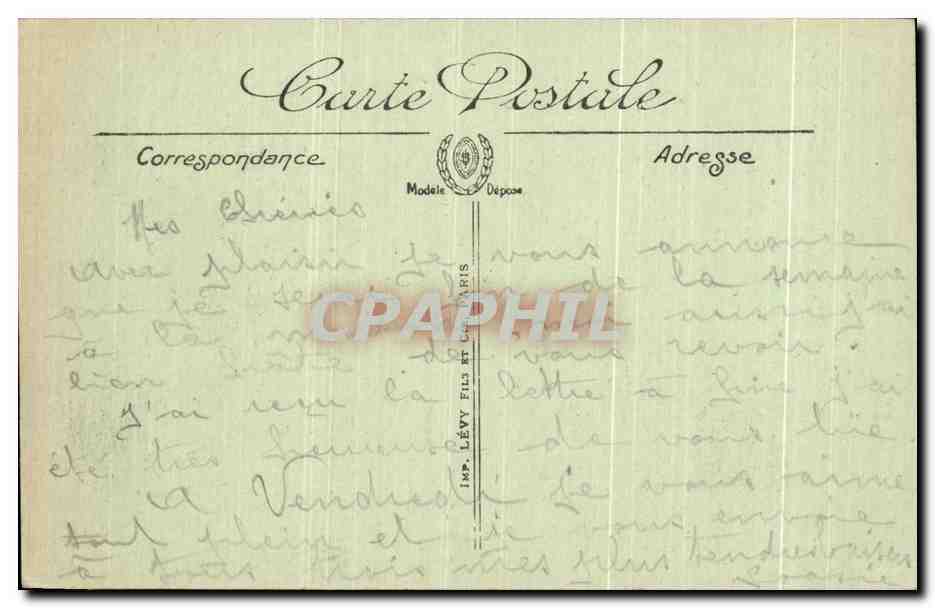 Carte Postale
Correspondance
Adresse
Modèle Déposé
IMP. LÉVY FILS ET CIE. PARIS
CPAPHIL
Mes Chéries
avec plaisir je vous annonce
que je de la semaine
à la aussi j'ai
bien hâte de vous revoir.
J'ai reçu la lettre à j'ai
été très heureuse de vous lire.
A Vendredi je vous aime
tout plein et je vous envoie
à tous trois mes plus tendres baisers